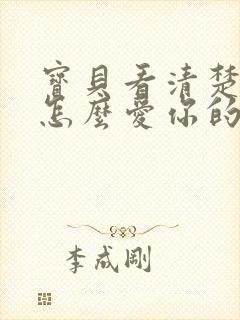 寶貝看清楚
怎麼愛你的
李成剛